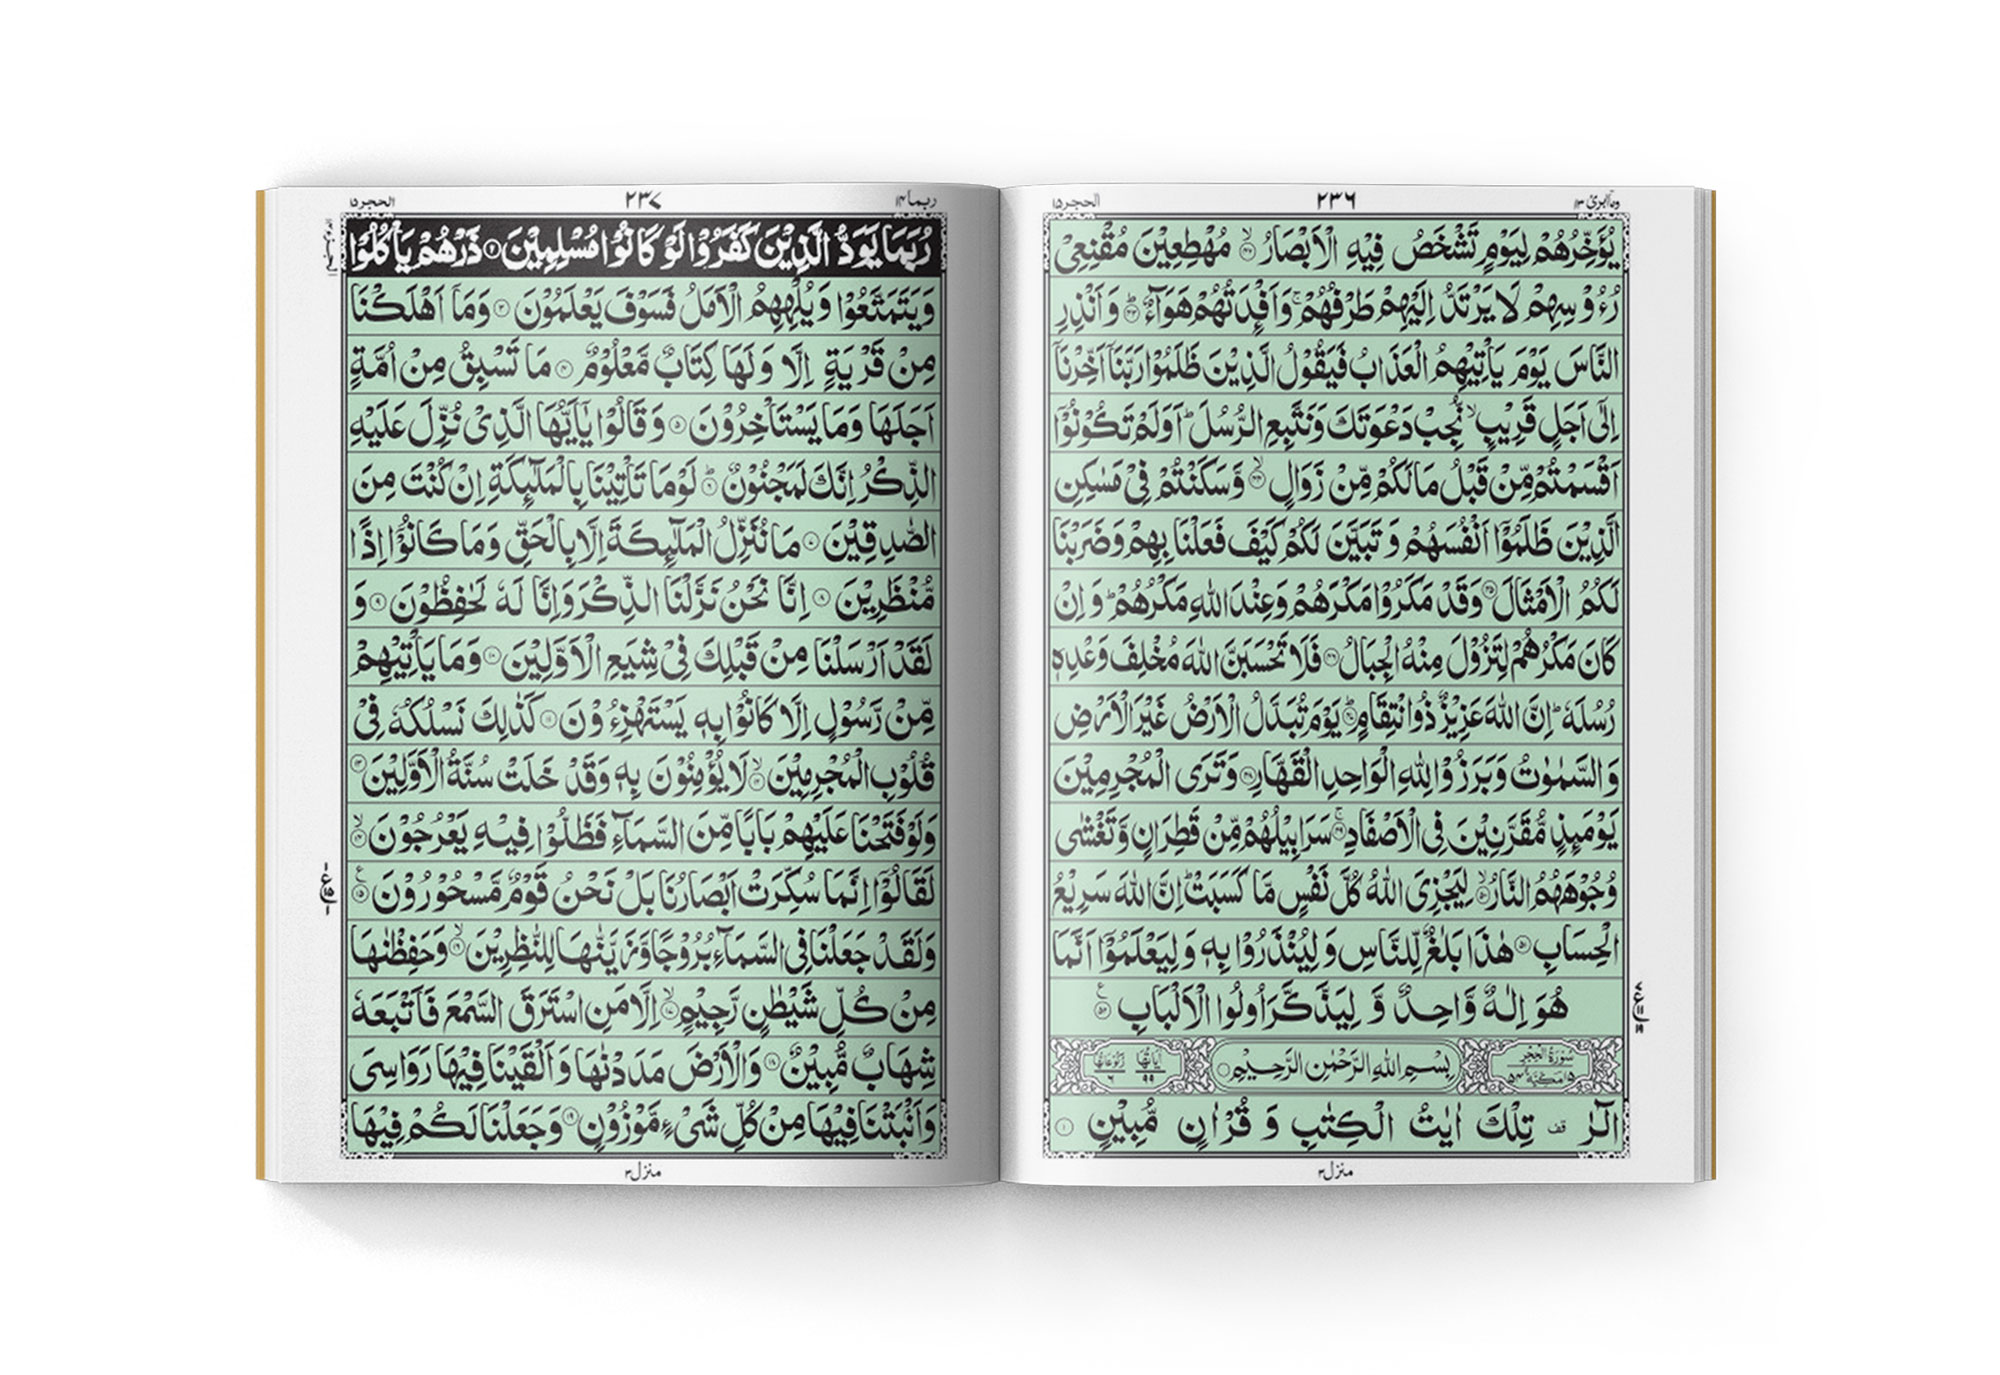 وما ابرئ ١٣
٢٣٦
الحجر ١٥
يُؤَخِّرُهُمْ لِيَوْمٍ تَشْخَصُ فِيْهِ الْاَبْصَارُ ۙ‏﴿٤٢﴾ مُهْطِعِيْنَ مُقْنِعِىْ
رُءُوْسِهِمْ لَا يَرْتَدُّ اِلَيْهِمْ طَرْفُهُمْ ۚ وَاَفْـِٕدَتُهُمْ هَوَآءٌ ؕ﴿٤٣﴾ وَاَنْذِرِ
النَّاسَ يَوْمَ يَاْتِيْهِمُ الْعَذَابُ فَيَقُوْلُ الَّذِيْنَ ظَلَمُوْا رَبَّنَاۤ اَخِّرْنَاۤ
اِلٰٓى اَجَلٍ قَرِيْبٍ ۙ نُّجِبْ دَعْوَتَكَ وَنَتَّبِعِ الرُّسُلَ ؕ اَوَلَمْ تَكُوْنُوْۤا
اَقْسَمْتُمْ مِّنْ قَبْلُ مَا لَكُمْ مِّنْ زَوَالٍ ۙ﴿٤٤﴾ وَّسَكَنْتُمْ فِىْ مَسٰكِنِ
الَّذِيْنَ ظَلَمُوْۤا اَنْفُسَهُمْ وَتَبَيَّنَ لَكُمْ كَيْفَ فَعَلْنَا بِهِمْ وَضَرَبْنَا
لَكُمُ الْاَمْثَالَ ﴿٤٥﴾ وَقَدْ مَكَرُوْا مَكْرَهُمْ وَعِنْدَ اللّٰهِ مَكْرُهُمْ ؕ وَاِنْ
كَانَ مَكْرُهُمْ لِتَزُوْلَ مِنْهُ الْجِبَالُ ﴿٤٦﴾ فَلَا تَحْسَبَنَّ اللّٰهَ مُخْلِفَ وَعْدِهٖ
رُسُلَهٗ ؕ اِنَّ اللّٰهَ عَزِيْزٌ ذُو انْتِقَامٍ ؕ﴿٤٧﴾ يَوْمَ تُبَدَّلُ الْاَرْضُ غَيْرَ الْاَرْضِ
وَالسَّمٰوٰتُ وَبَرَزُوْا لِلّٰهِ الْوَاحِدِ الْقَهَّارِ ﴿٤٨﴾ وَتَرَى الْمُجْرِمِيْنَ
يَوْمَئِذٍ مُّقَرَّنِيْنَ فِى الْاَصْفَادِ ۚ﴿٤٩﴾ سَرَابِيْلُهُمْ مِّنْ قَطِرَانٍ وَّتَغْشٰى
وُجُوْهَهُمُ النَّارُ ۙ﴿٥٠﴾ لِيَجْزِىَ اللّٰهُ كُلَّ نَفْسٍ مَّا كَسَبَتْ ؕ اِنَّ اللّٰهَ سَرِيْعُ
الْحِسَابِ ﴿٥١﴾ هٰذَا بَلٰغٌ لِّلنَّاسِ وَلِيُنْذَرُوْا بِهٖ وَلِيَعْلَمُوْۤا اَنَّمَا
هُوَ اِلٰهٌ وَّاحِدٌ وَّ لِيَذَّكَّرَ اُولُوا الْاَلْبَابِ ﴿٥٢﴾
سُوْرَةُ الْحِجْرِ ١٥ مَكِّيَّةٌ ٥٤
بِسْمِ اللّٰهِ الرَّحْمٰنِ الرَّحِيْمِ
اٰيَاتُهَا ٩٩ رُكُوْعَاتُهَا ٦
الٓرٰ قف تِلْكَ اٰيٰتُ الْكِتٰبِ وَ قُرْاٰنٍ مُّبِيْنٍ ﴿١﴾
منزل ٣
ربما ١٤
٢٣٧
الحجر ١٥
رُبَمَا يَوَدُّ الَّذِيْنَ كَفَرُوْا لَوْ كَانُوْا مُسْلِمِيْنَ ﴿٢﴾ ذَرْهُمْ يَاْكُلُوْا
وَيَتَمَتَّعُوْا وَيُلْهِهِمُ الْاَمَلُ فَسَوْفَ يَعْلَمُوْنَ ﴿٣﴾ وَمَاۤ اَهْلَكْنَا
مِنْ قَرْيَةٍ اِلَّا وَلَهَا كِتَابٌ مَّعْلُوْمٌ ﴿٤﴾ مَا تَسْبِقُ مِنْ اُمَّةٍ
اَجَلَهَا وَمَا يَسْتَاْخِرُوْنَ ﴿٥﴾ وَقَالُوْا يٰۤاَيُّهَا الَّذِىْ نُزِّلَ عَلَيْهِ
الذِّكْرُ اِنَّكَ لَمَجْنُوْنٌ ؕ﴿٦﴾ لَوْ مَا تَاْتِيْنَا بِالْمَلٰٓئِكَةِ اِنْ كُنْتَ مِنَ
الصّٰدِقِيْنَ ﴿٧﴾ مَا نُنَزِّلُ الْمَلٰٓئِكَةَ اِلَّا بِالْحَقِّ وَمَا كَانُوْۤا اِذًا
مُّنْظَرِيْنَ ﴿٨﴾ اِنَّا نَحْنُ نَزَّلْنَا الذِّكْرَ وَاِنَّا لَهٗ لَحٰفِظُوْنَ ﴿٩﴾ وَ
لَقَدْ اَرْسَلْنَا مِنْ قَبْلِكَ فِىْ شِيَعِ الْاَوَّلِيْنَ ﴿١٠﴾ وَمَا يَاْتِيْهِمْ
مِّنْ رَّسُوْلٍ اِلَّا كَانُوْا بِهٖ يَسْتَهْزِءُوْنَ ﴿١١﴾ كَذٰلِكَ نَسْلُكُهٗ فِىْ
قُلُوْبِ الْمُجْرِمِيْنَ ۙ﴿١٢﴾ لَا يُؤْمِنُوْنَ بِهٖ وَقَدْ خَلَتْ سُنَّةُ الْاَوَّلِيْنَ ﴿١٣﴾
وَلَوْ فَتَحْنَا عَلَيْهِمْ بَابًا مِّنَ السَّمَآءِ فَظَلُّوْا فِيْهِ يَعْرُجُوْنَ ۙ﴿١٤﴾
لَقَالُوْۤا اِنَّمَا سُكِّرَتْ اَبْصَارُنَا بَلْ نَحْنُ قَوْمٌ مَّسْحُوْرُوْنَ ﴿١٥﴾
وَلَقَدْ جَعَلْنَا فِى السَّمَآءِ بُرُوْجًا وَّزَيَّنّٰهَا لِلنّٰظِرِيْنَ ۙ﴿١٦﴾ وَحَفِظْنٰهَا
مِنْ كُلِّ شَيْطٰنٍ رَّجِيْمٍ ۙ﴿١٧﴾ اِلَّا مَنِ اسْتَرَقَ السَّمْعَ فَاَتْبَعَهٗ
شِهَابٌ مُّبِيْنٌ ﴿١٨﴾ وَالْاَرْضَ مَدَدْنٰهَا وَاَلْقَيْنَا فِيْهَا رَوَاسِىَ
وَاَنْۢبَتْنَا فِيْهَا مِنْ كُلِّ شَىْءٍ مَّوْزُوْنٍ ﴿١٩﴾ وَجَعَلْنَا لَكُمْ فِيْهَا
منزل ٣